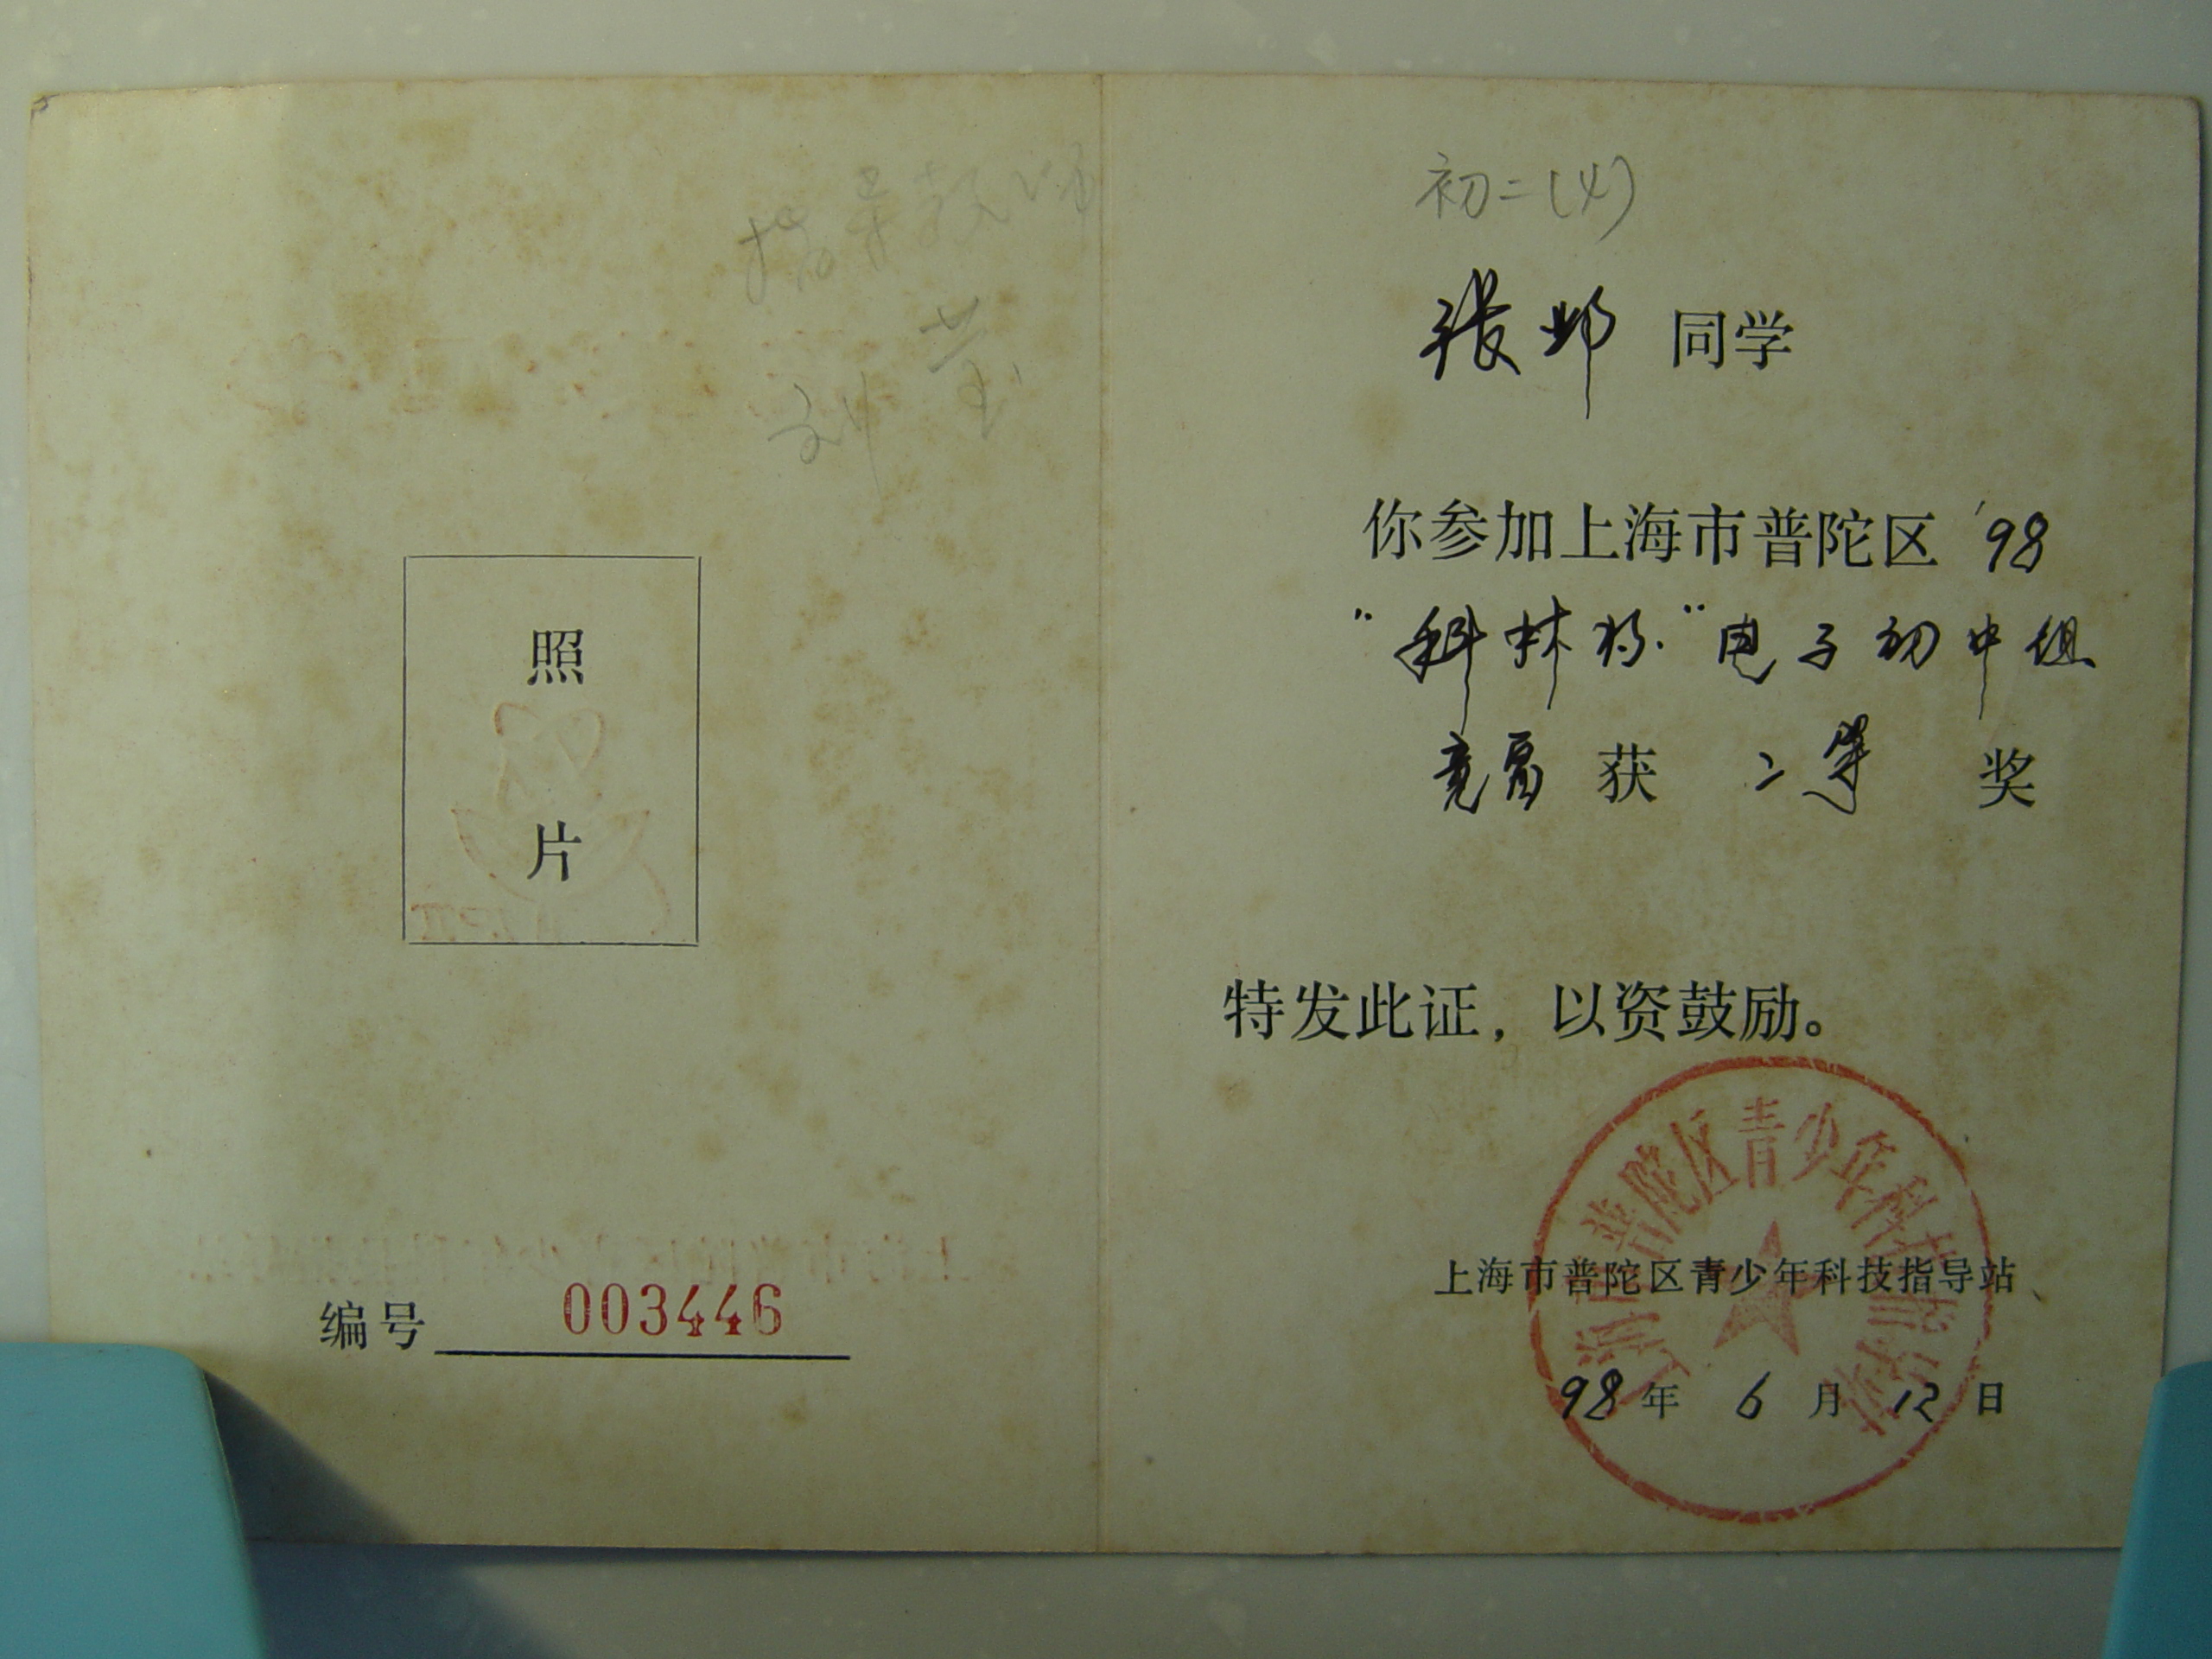 指导教师
刘莹
照
片
编号 003446
初二(4)
张邺 同学
你参加上海市普陀区 '98
"科林杯"电子初中组
竞赛 获 二等 奖
特发此证，以资鼓励。
上海市普陀区青少年科技指导站
98年 6月 12日
上海市普陀区青少年科技指导站